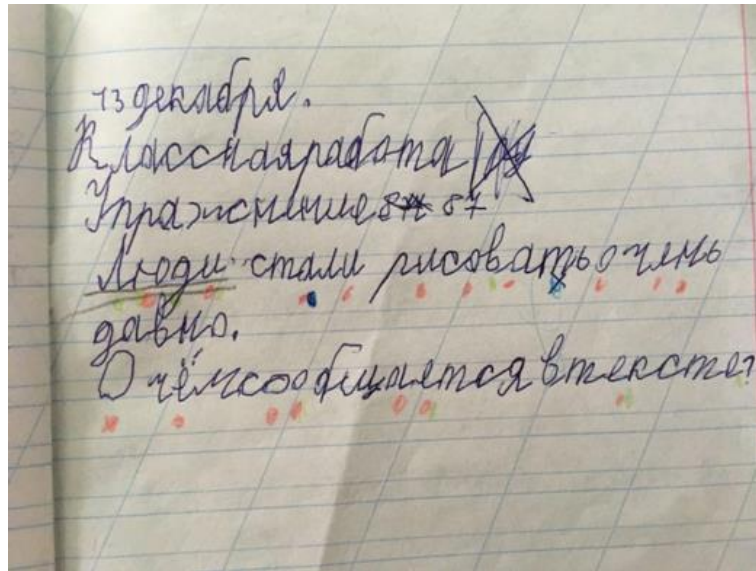 13 декабря.
Классная работа
Упражнение 87
Люди стали рисовать очень
давно.
О чём сообщается в тексте?